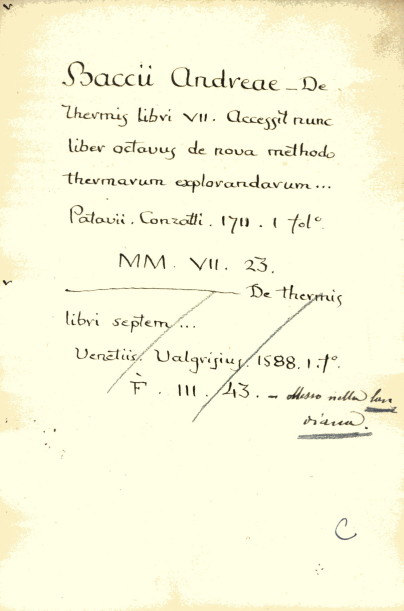 Baccii Andreae _ De
thermis libri VII. Accessit nunc
liber octavus de nova methodo
thermarum explorandarum...
Patavii. Conzatti. 1711. 1 fol°.
MM. VII. 23.
— De thermis
libri septem...
Venetiis. Valgrisius. 1588. 1. f°.
F. III. 43. — Messo nella Lan
diana.
C